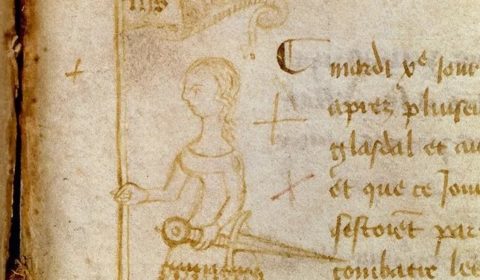 IHS
mardi xe jour
aprez pluiseu
glasdal et au
et que ce Jour
sestoiēt par
combatre les